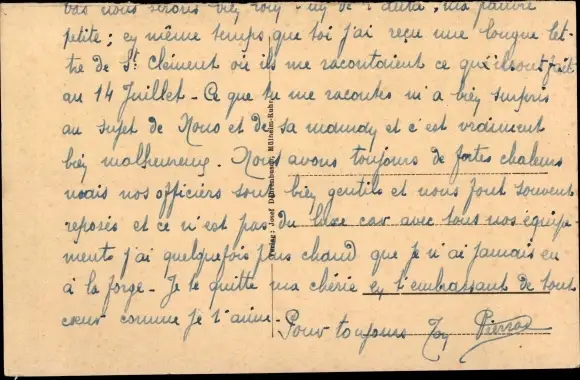 bas nous serons bien loin l'un de l'autre, ma pauvre
petite; en même temps que toi j'ai reçu une longue let-
tre de St. Clément où ils me racontaient ce qu'ils ont fait
au 14 Juillet - Ce que tu me racontes m'a bien surpris
au sujet de Nono et de sa mandy et c'est vraiment
bien malheureux. Nous avons toujours de fortes chaleurs
mais nos officiers sont bien gentils et nous font souvent
reposés et ce n'est pas du luxe car avec tous nos équipe-
ments j'ai quelquefois plus chaud que je n'ai jamais eu
à la forge - Je te quitte ma chérie en t'embrassant de tout
cœur comme je t'aime - Pour toujours Ton Pierrot
Verlag: Josef Mülheim-Ruhr